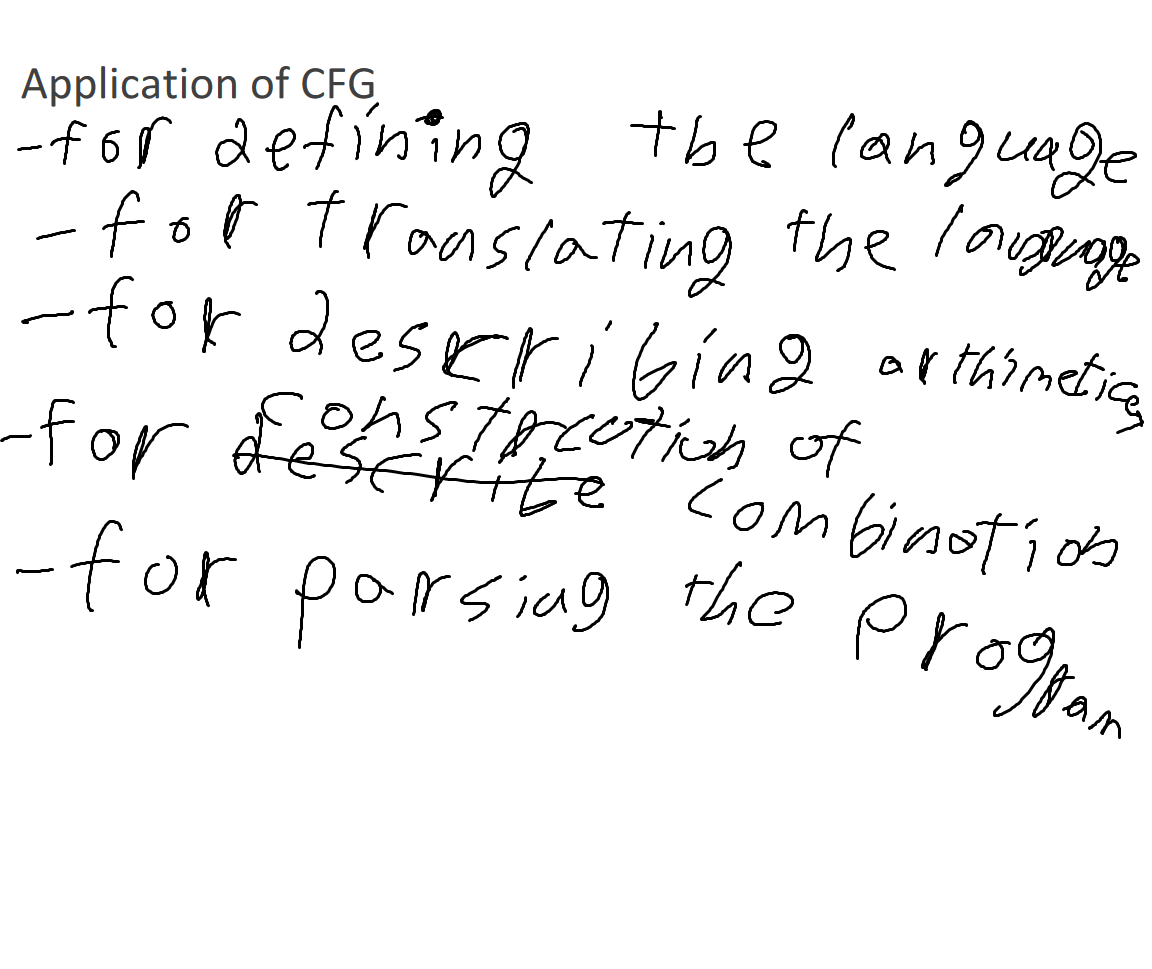 Application of CFG
-for defining the language
-for translating the language
-for describing arthimetics
-for construction of
describe combination
-for parsing the program